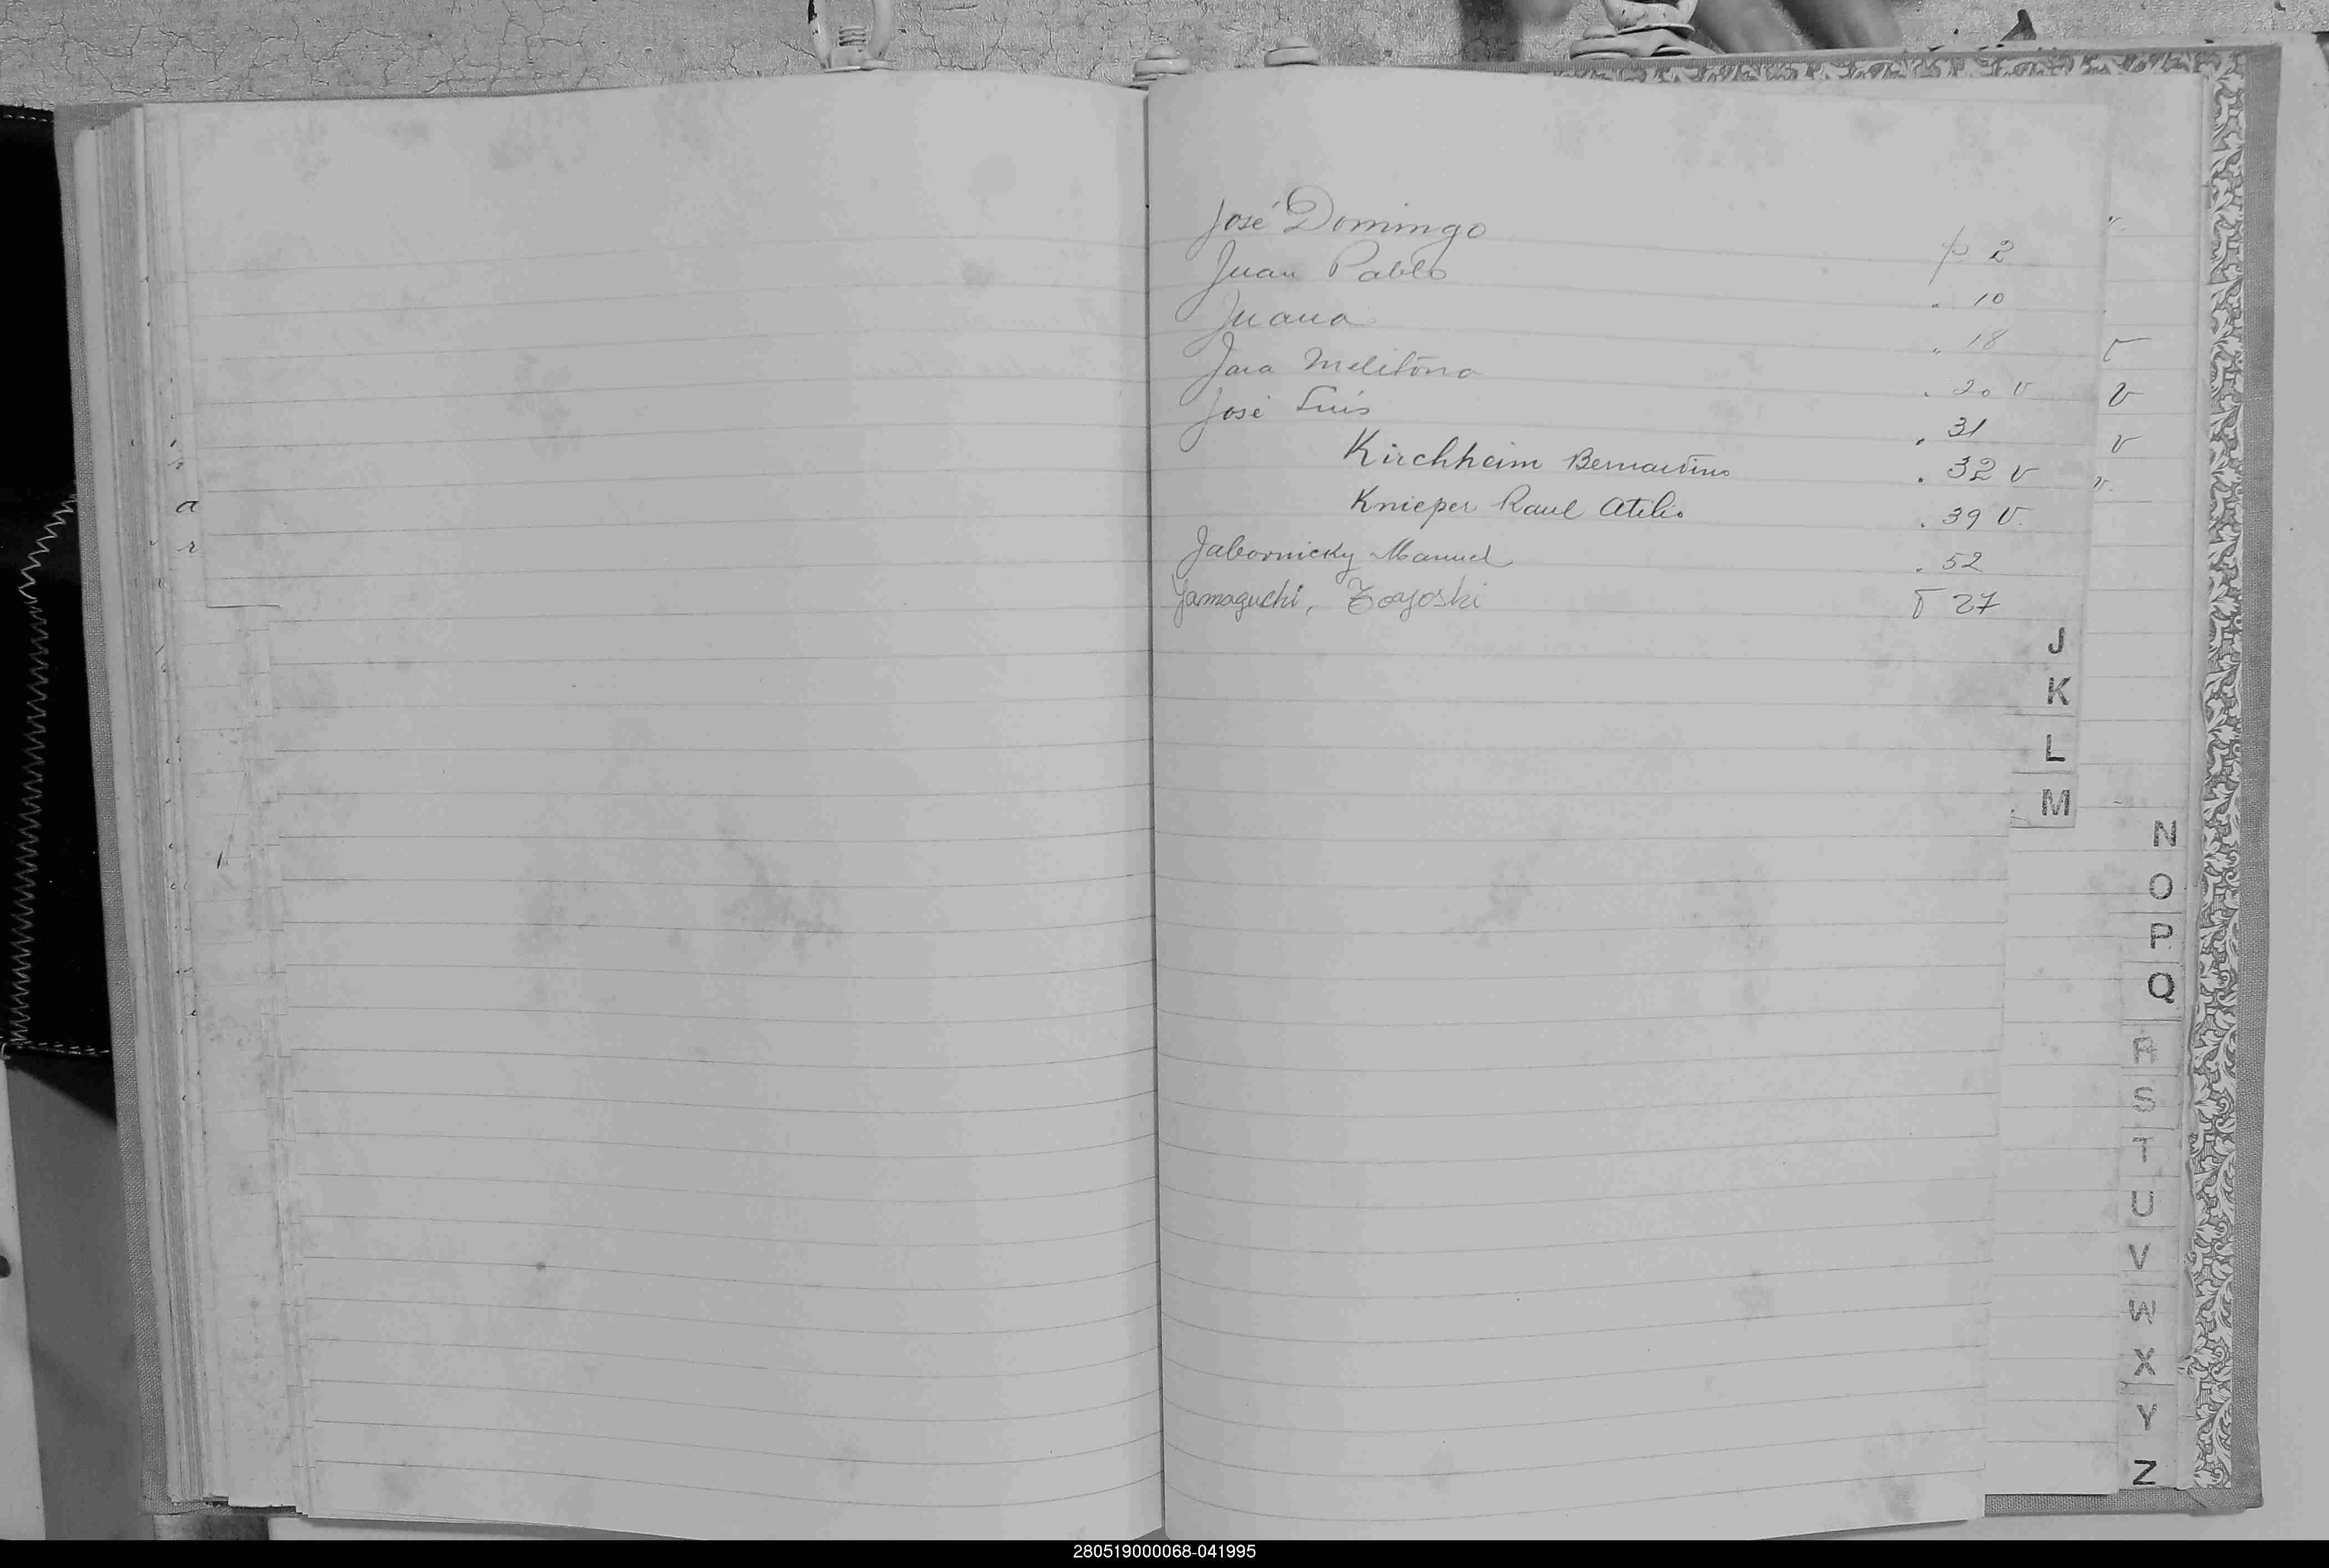 José Domingo p 2
Juan Pablo " 10
Juana " 18
Jara Melitona . 20 v
José Luis . 31
Kirchheim Bernardino . 32 v
Knieper Raul Atilio . 39 v.
Jabornicky Manuel . 52
Yamaguchi, Toyoshi F 27
J
K
L
M
N
O
P
Q
R
S
T
U
V
W
X
Y
Z
280519000068-041995